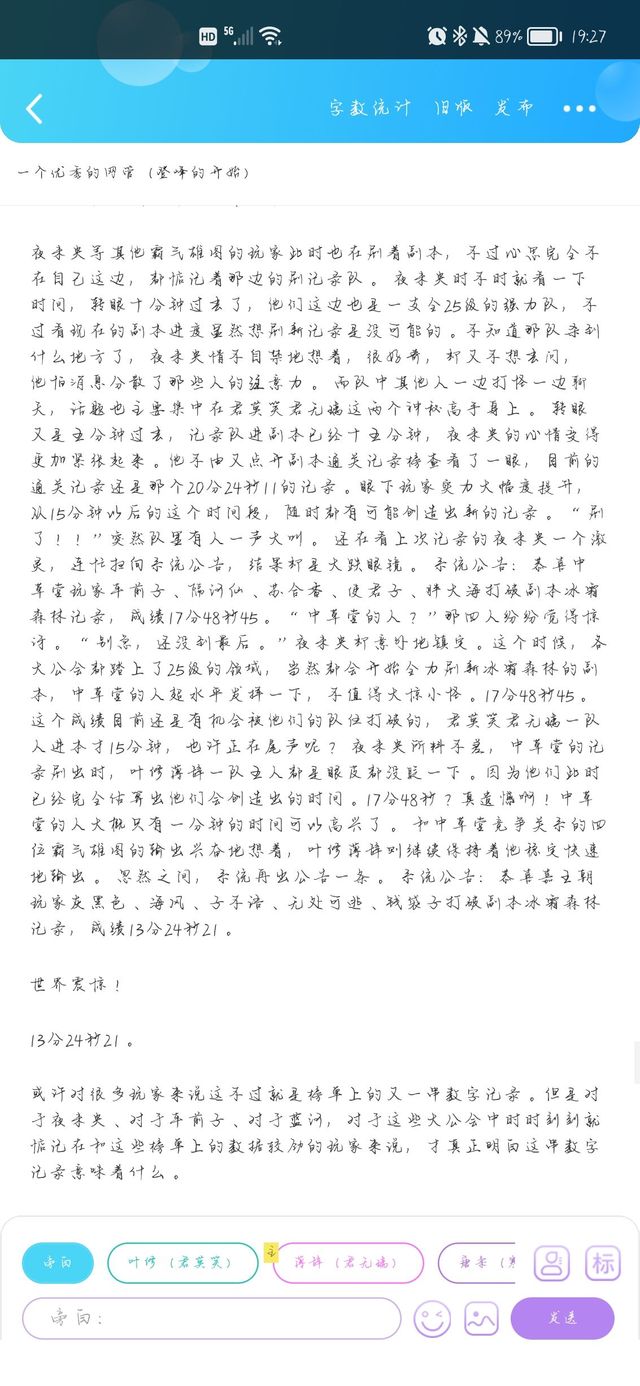 HD 5G 89% 19:27
字数统计 旧版 发布
一个优秀的网管（登峰的开始）
夜未央等其他霸气雄图的玩家此时也在刷着副本，不过心思完全不
在自己这边，都惦记着那边的刷记录队。夜未央时不时就看一下
时间，转眼十分钟过去了，他们这边也是一支全25级的强力队，不
过看现在的副本进度显然想刷新记录是没可能的。不知道那队杀到
什么地方了，夜未央情不自禁地想着，很好奇，却又不想去问，
他怕消息分散了那些人的注意力。而队中其他人一边打怪一边聊
天，话题也主要集中在君莫笑君无端这两个神秘高手身上。转眼
又是五分钟过去，记录队进副本已经十五分钟，夜未央的心情变得
更加紧张起来。他不由又点开副本通关记录榜查看了一眼，目前的
通关记录还是那个20分24秒11的记录。眼下玩家实力大幅度提升，
从15分钟以后的这个时间段，随时都有可能创造出新的记录。“刷
了！！”突然队里有人一声大叫。还在看上次记录的夜未央一个激
灵，连忙扫向系统公告，结果却是大跌眼镜。系统公告：恭喜中
草堂玩家车前子、隔河仙、苏合香、使君子、胖大海打破副本冰霜
森林记录，成绩17分48秒45。“中草堂的人？”那四人纷纷觉得惊
讶。“别急，还没到最后。”夜未央却意外地镇定。这个时候，各
大公会都踏上了25级的领域，当然都会开始全力刷新冰霜森林的副
本，中草堂的人超水平发挥一下，不值得大惊小怪。17分48秒45。
这个成绩目前还是有机会被他们的队伍打破的，君莫笑君无端一队
人进本才15分钟，也许正在尾声呢？夜未央所料不差，中草堂的记
录刷出时，叶修薄辞一队五人都是眼皮都没眨一下。因为他们此时
已经完全估算出他们会创造出的时间。17分48秒？真遗憾啊！中草
堂的人大概只有一分钟的时间可以高兴了。和中草堂竞争关系的四
位霸气雄图的输出兴奋地想着，叶修薄辞则继续保持着他稳定快速
地输出。忽然之间，系统再出公告一条。系统公告：恭喜嘉王朝
玩家灰黑色、海风、子不语、无处可逃、钱袋子打破副本冰霜森林
记录，成绩13分24秒21。
世界震惊！
13分24秒21。
或许对很多玩家来说这不过就是榜单上的又一串数字记录。但是对
于夜未央、对于车前子、对于蓝河，对于这些大公会中时时刻刻就
惦记在和这些榜单上的数据较劲的玩家来说，才真正明白这串数字
记录意味着什么。
旁白 叶修（君莫笑） 主 薄辞（君无端） 标
旁白： 发送